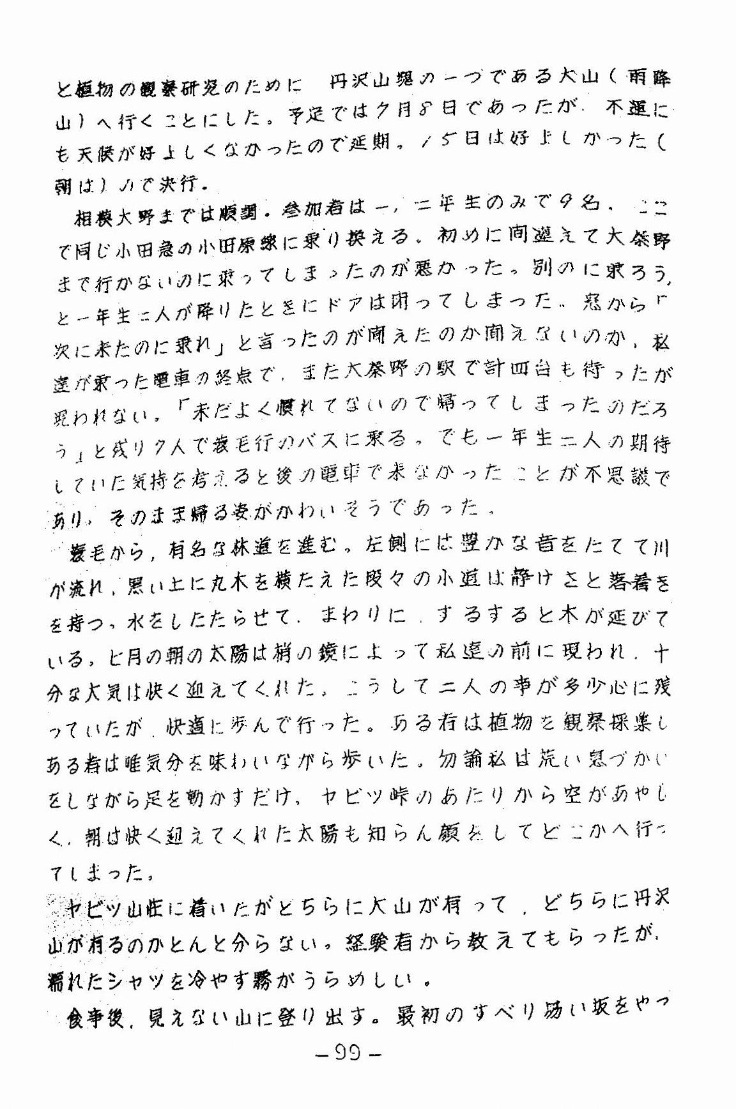 と植物の観察研究のために　丹沢山塊の一つである大山（雨降
山）へ行くことにした。予定では7月8日であったが、不運に
も天候が好ましくなかったので延期。15日は好ましかった（
朝は）ので決行。
相模大野までは順調。参加者は一、二年生のみで9名、ここ
で同じ小田急の小田原線に乗り換える。初めに間違えて大秦野
まで行かないのに乗ってしまったのが悪かった。別のに乗ろう、
と一年生二人が降りたときにドアは閉ってしまった。窓から「
次に来たのに乗れ」と言ったのが聞えたのか聞えないのか、私
達が乗った電車の終点で、また大秦野の駅で計四台も待ったが
現われない。「未だよく慣れてないので帰ってしまったのだろ
う」と残り7人で蓑毛行のバスに乗る。でも一年生二人の期待
していた気持を考えると後の電車で来なかったことが不思議で
あり、そのまま帰る姿がかわいそうであった。
蓑毛から、有名な林道を進む。左側には豊かな音をたてて川
が流れ、黒い土に丸木を横たえた段々の小道は静けさと落着き
を持つ。水をしたたらせて、まわりに、するすると木が延びて
いる。七月の朝の太陽は梢の鏡によって私達の前に現われ、十
分な大気は快く迎えてくれた。こうして二人の事が多少心に残
っていたが、快適に歩んで行った。ある者は植物を観察採集し
ある者は唯気分を味わいながら歩いた。勿論私は荒い息づかい
をしながら足を動かすだけ、ヤビツ峠のあたりから空があやし
く、朝は快く迎えてくれた太陽も知らん顔をしてどこかへ行っ
てしまった。
ヤビツ山荘に着いたがどちらに大山が有って、どちらに丹沢
山が有るのかとんと分らない。経験者から教えてもらったが、
濡れたシャツを冷やす霧がうらめしい。
食事後、見えない山に登り出す。最初のすべり易い坂をやっ
－99－